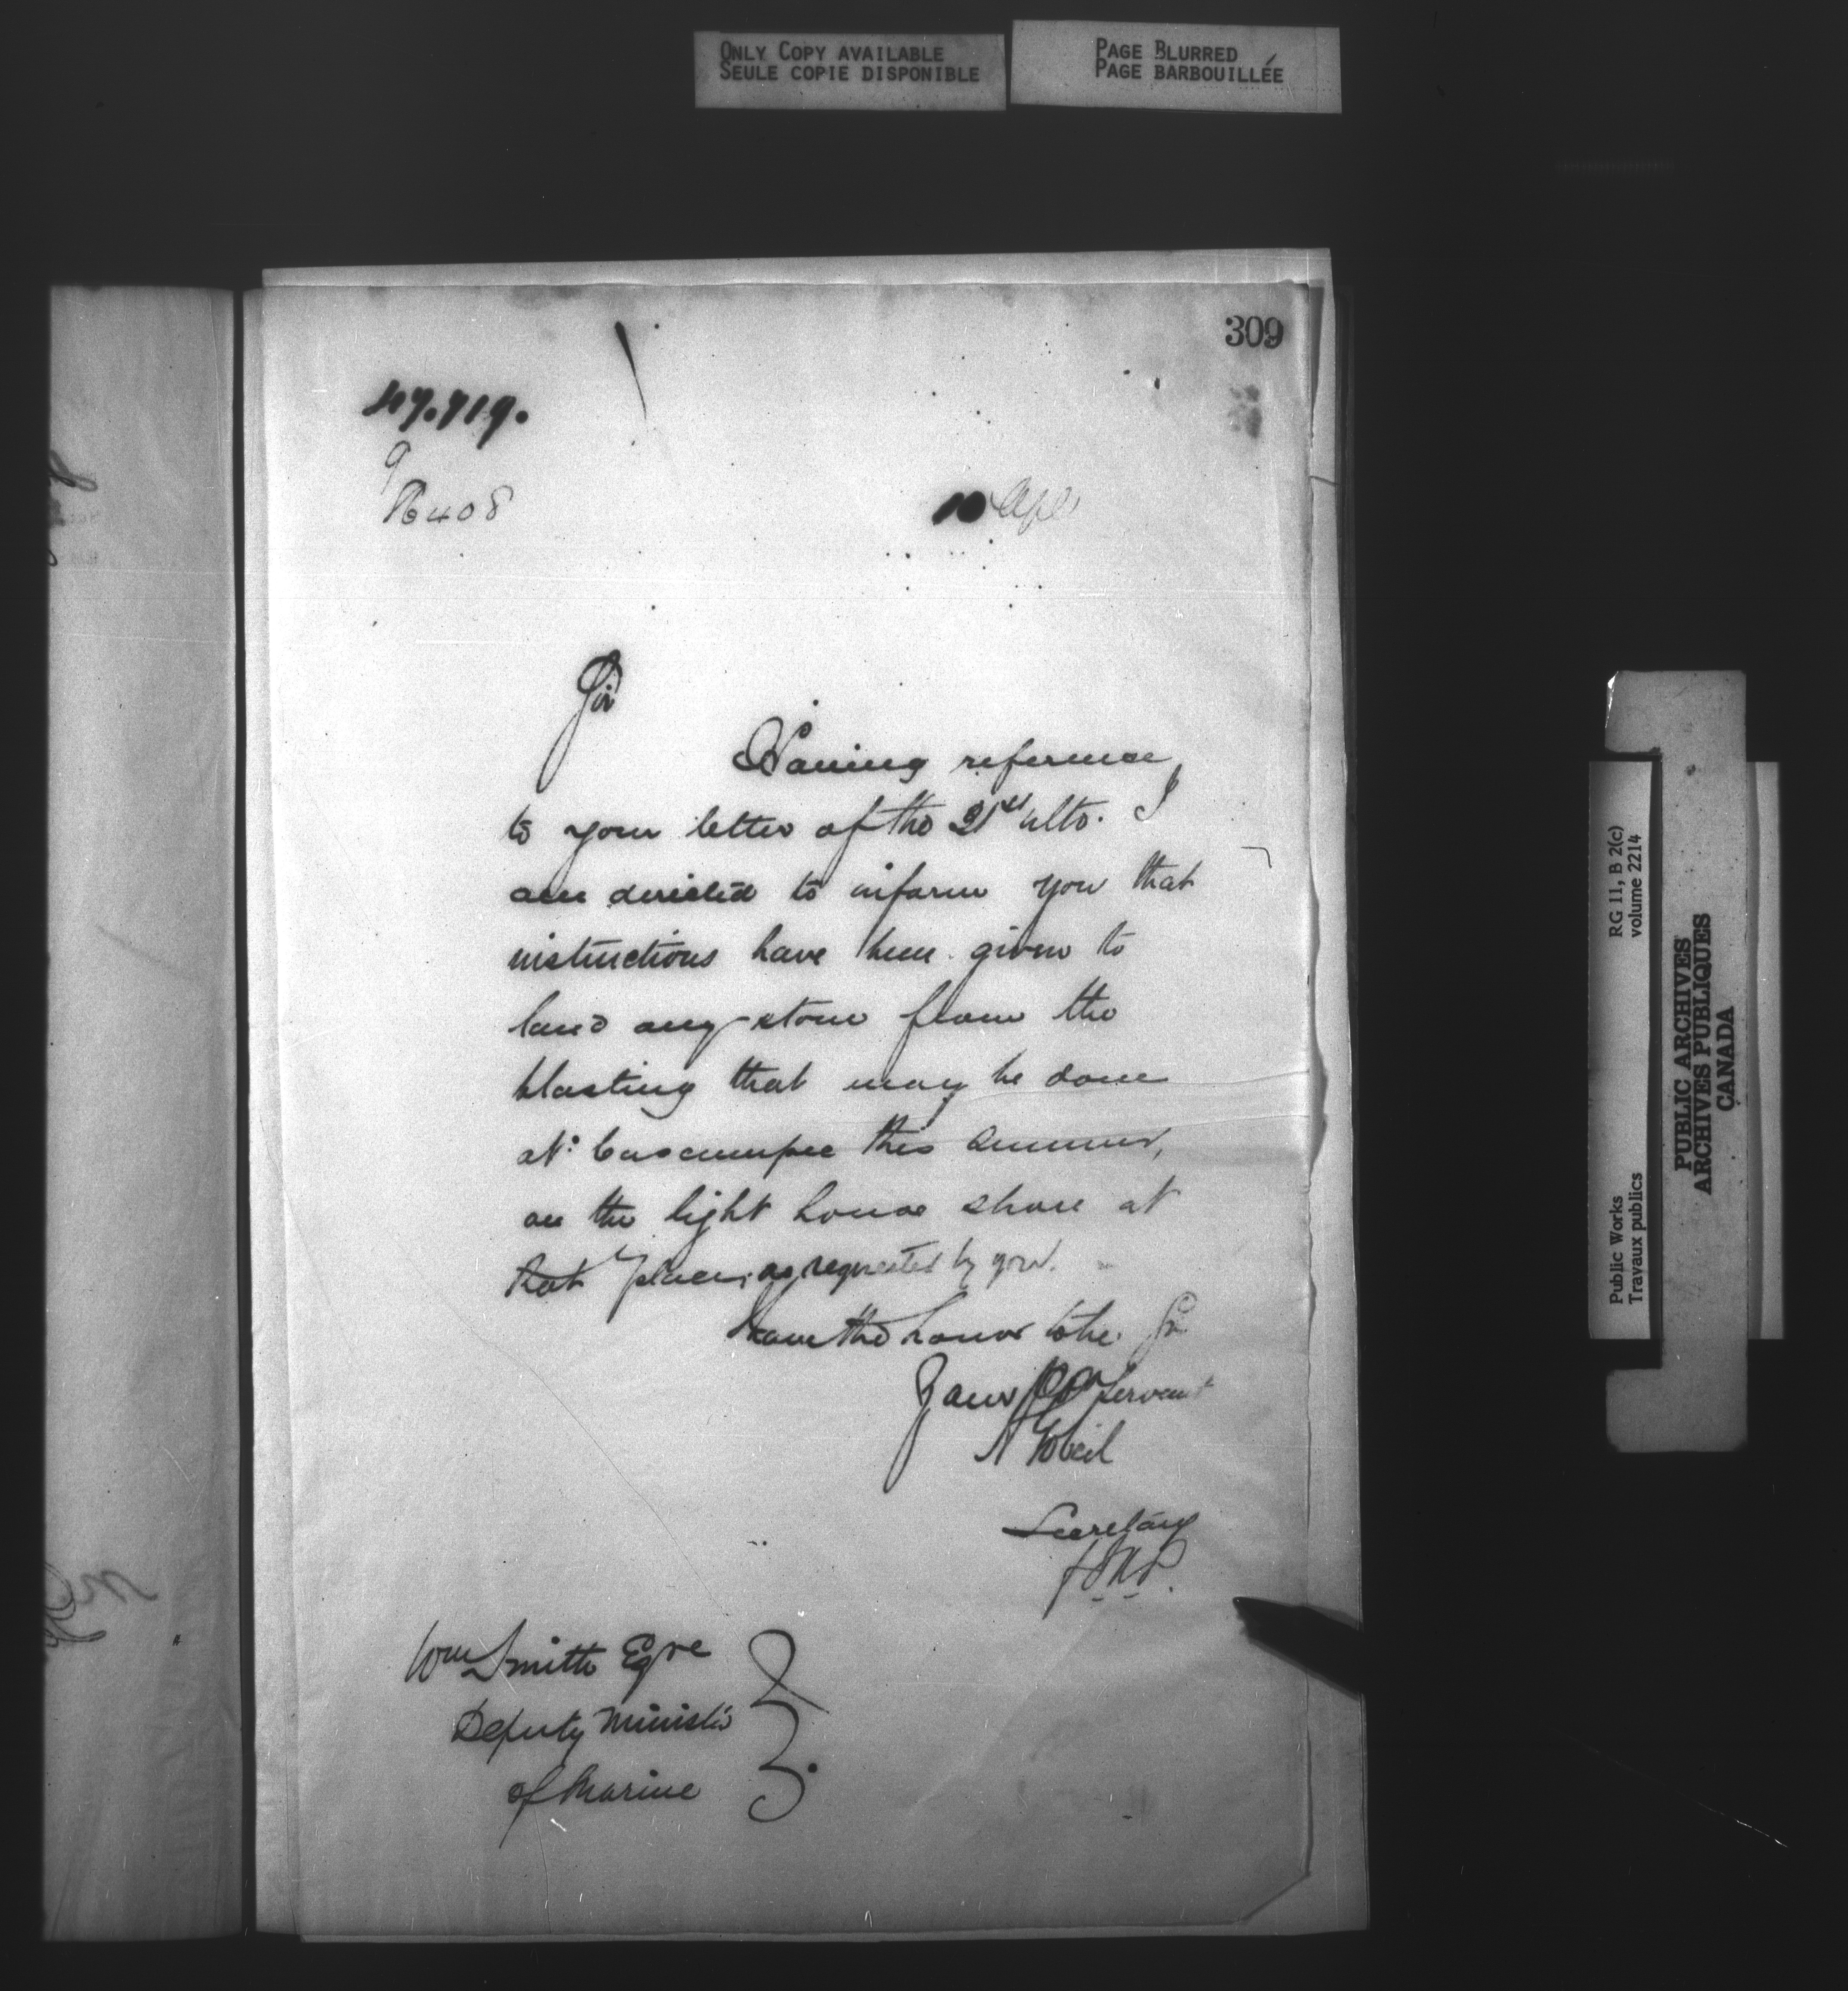 ONLY COPY AVAILABLE
SEULE COPIE DISPONIBLE
PAGE BLURRED
PAGE BARBOUILLÉE
309
47.719.
9
76408
10 Apl
Sir
Having reference
to your letter of the 21st ulto. I
am directed to inform you that
instructions have been given to
land any stone from the
blasting that may be done
at Cascumpec this summer,
on the light house shore at
that place, as requested by you.
have the honor to be Sir
Your Servant
A Gobeil
Secretary
Wm Smith Eqre
Deputy Minister
of Marine
Public Works
Travaux publics
RG 11, B 2(c)
volume 2214
PUBLIC ARCHIVES
ARCHIVES PUBLIQUES
CANADA